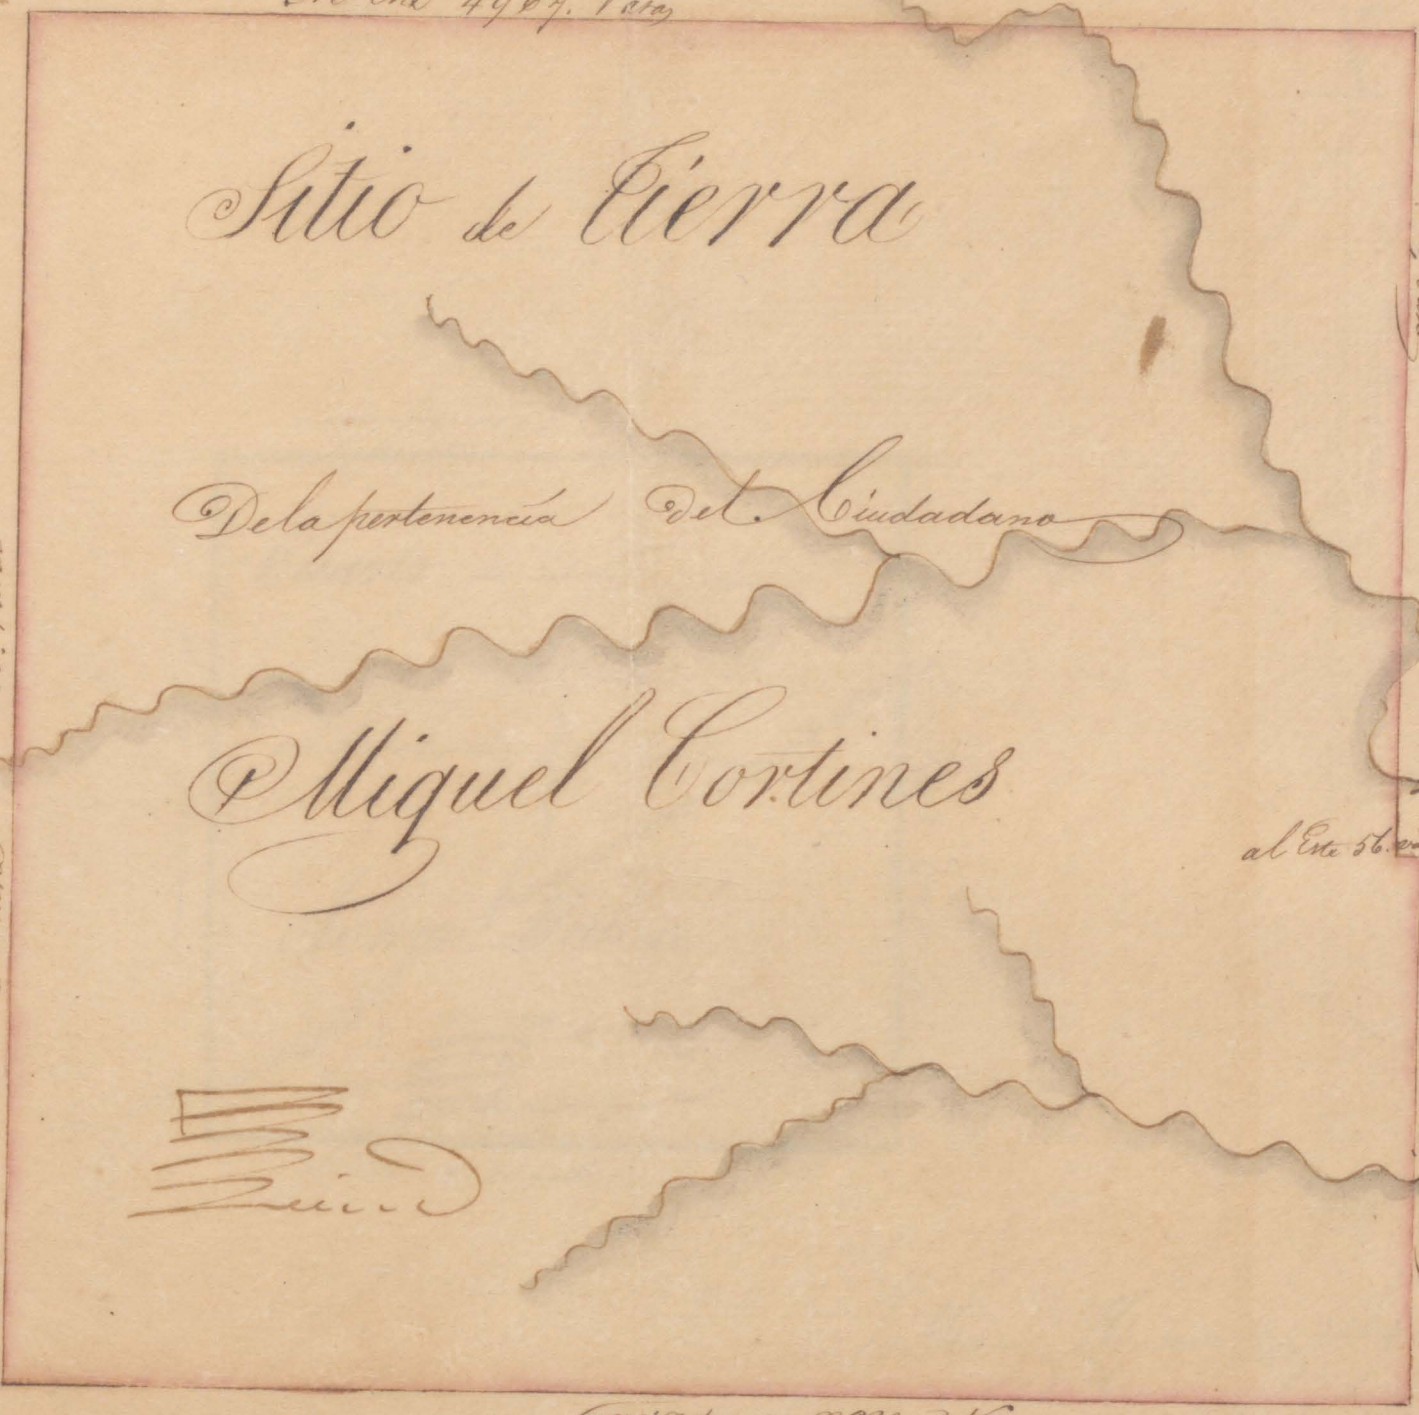 4967. Varas
Sitio de Tierra
De la pertenencia del Ciudadano
Miguel Cortines
al Este 56. va